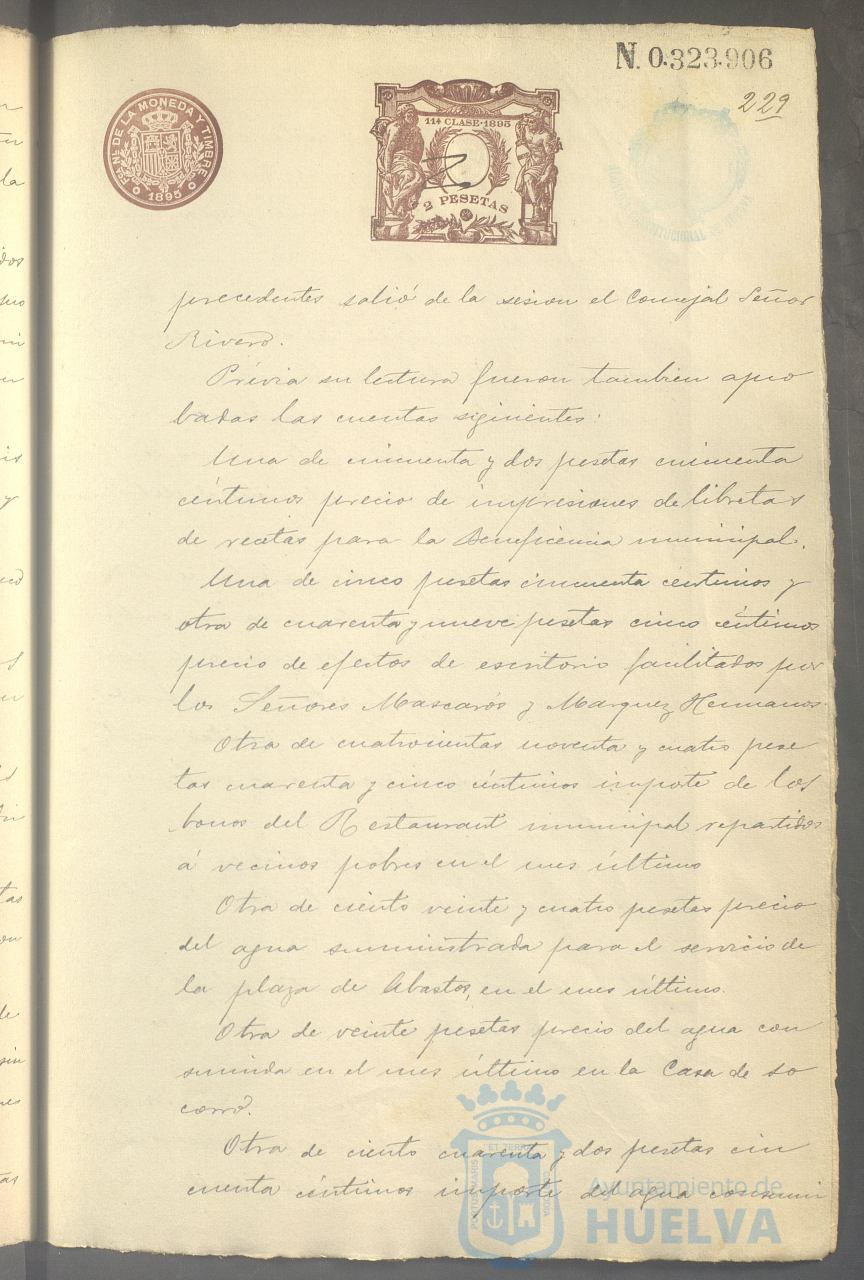 N. 0.323.906
229
FCA. NL. DE LA MONEDA Y TIMBRE
1895
11ª CLASE·1895
2 PESETAS
precedentes salió de la sesion el Concejal Señor
Rivero.
Prévia su lectura fueron tambien apro
badas las cuentas siguientes:
Una de cincuenta y dos pesetas cincuenta
céntimos precio de impresiones de libretas
de recetas para la Beneficencia municipal.
Una de cinco pesetas cincuenta céntimos y
otra de cuarenta y nueve pesetas cinco céntimos
precio de efectos de escritorio facilitados por
los Señores Mascarós y Marquez Hermanos.
Otra de cuatrocientas noventa y cuatro pese
tas cuarenta y cinco céntimos impote de los
bonos del Restaurant municipal repartidos
á vecinos pobres en el mes último
Otra de ciento veinte y cuatro pesetas precio
del agua suministrada para el servicio de
la plaza de Abastos, en el mes último.
Otra de veinte pesetas precio del agua con
sumida en el mes último en la Casa de So
corro.
Otra de ciento cuarenta y dos pesetas cin
cuenta céntimos importe del agua consumi
PORTUS MARIS ET TERRAE CUSTODIA
Ayuntamiento de
HUELVA